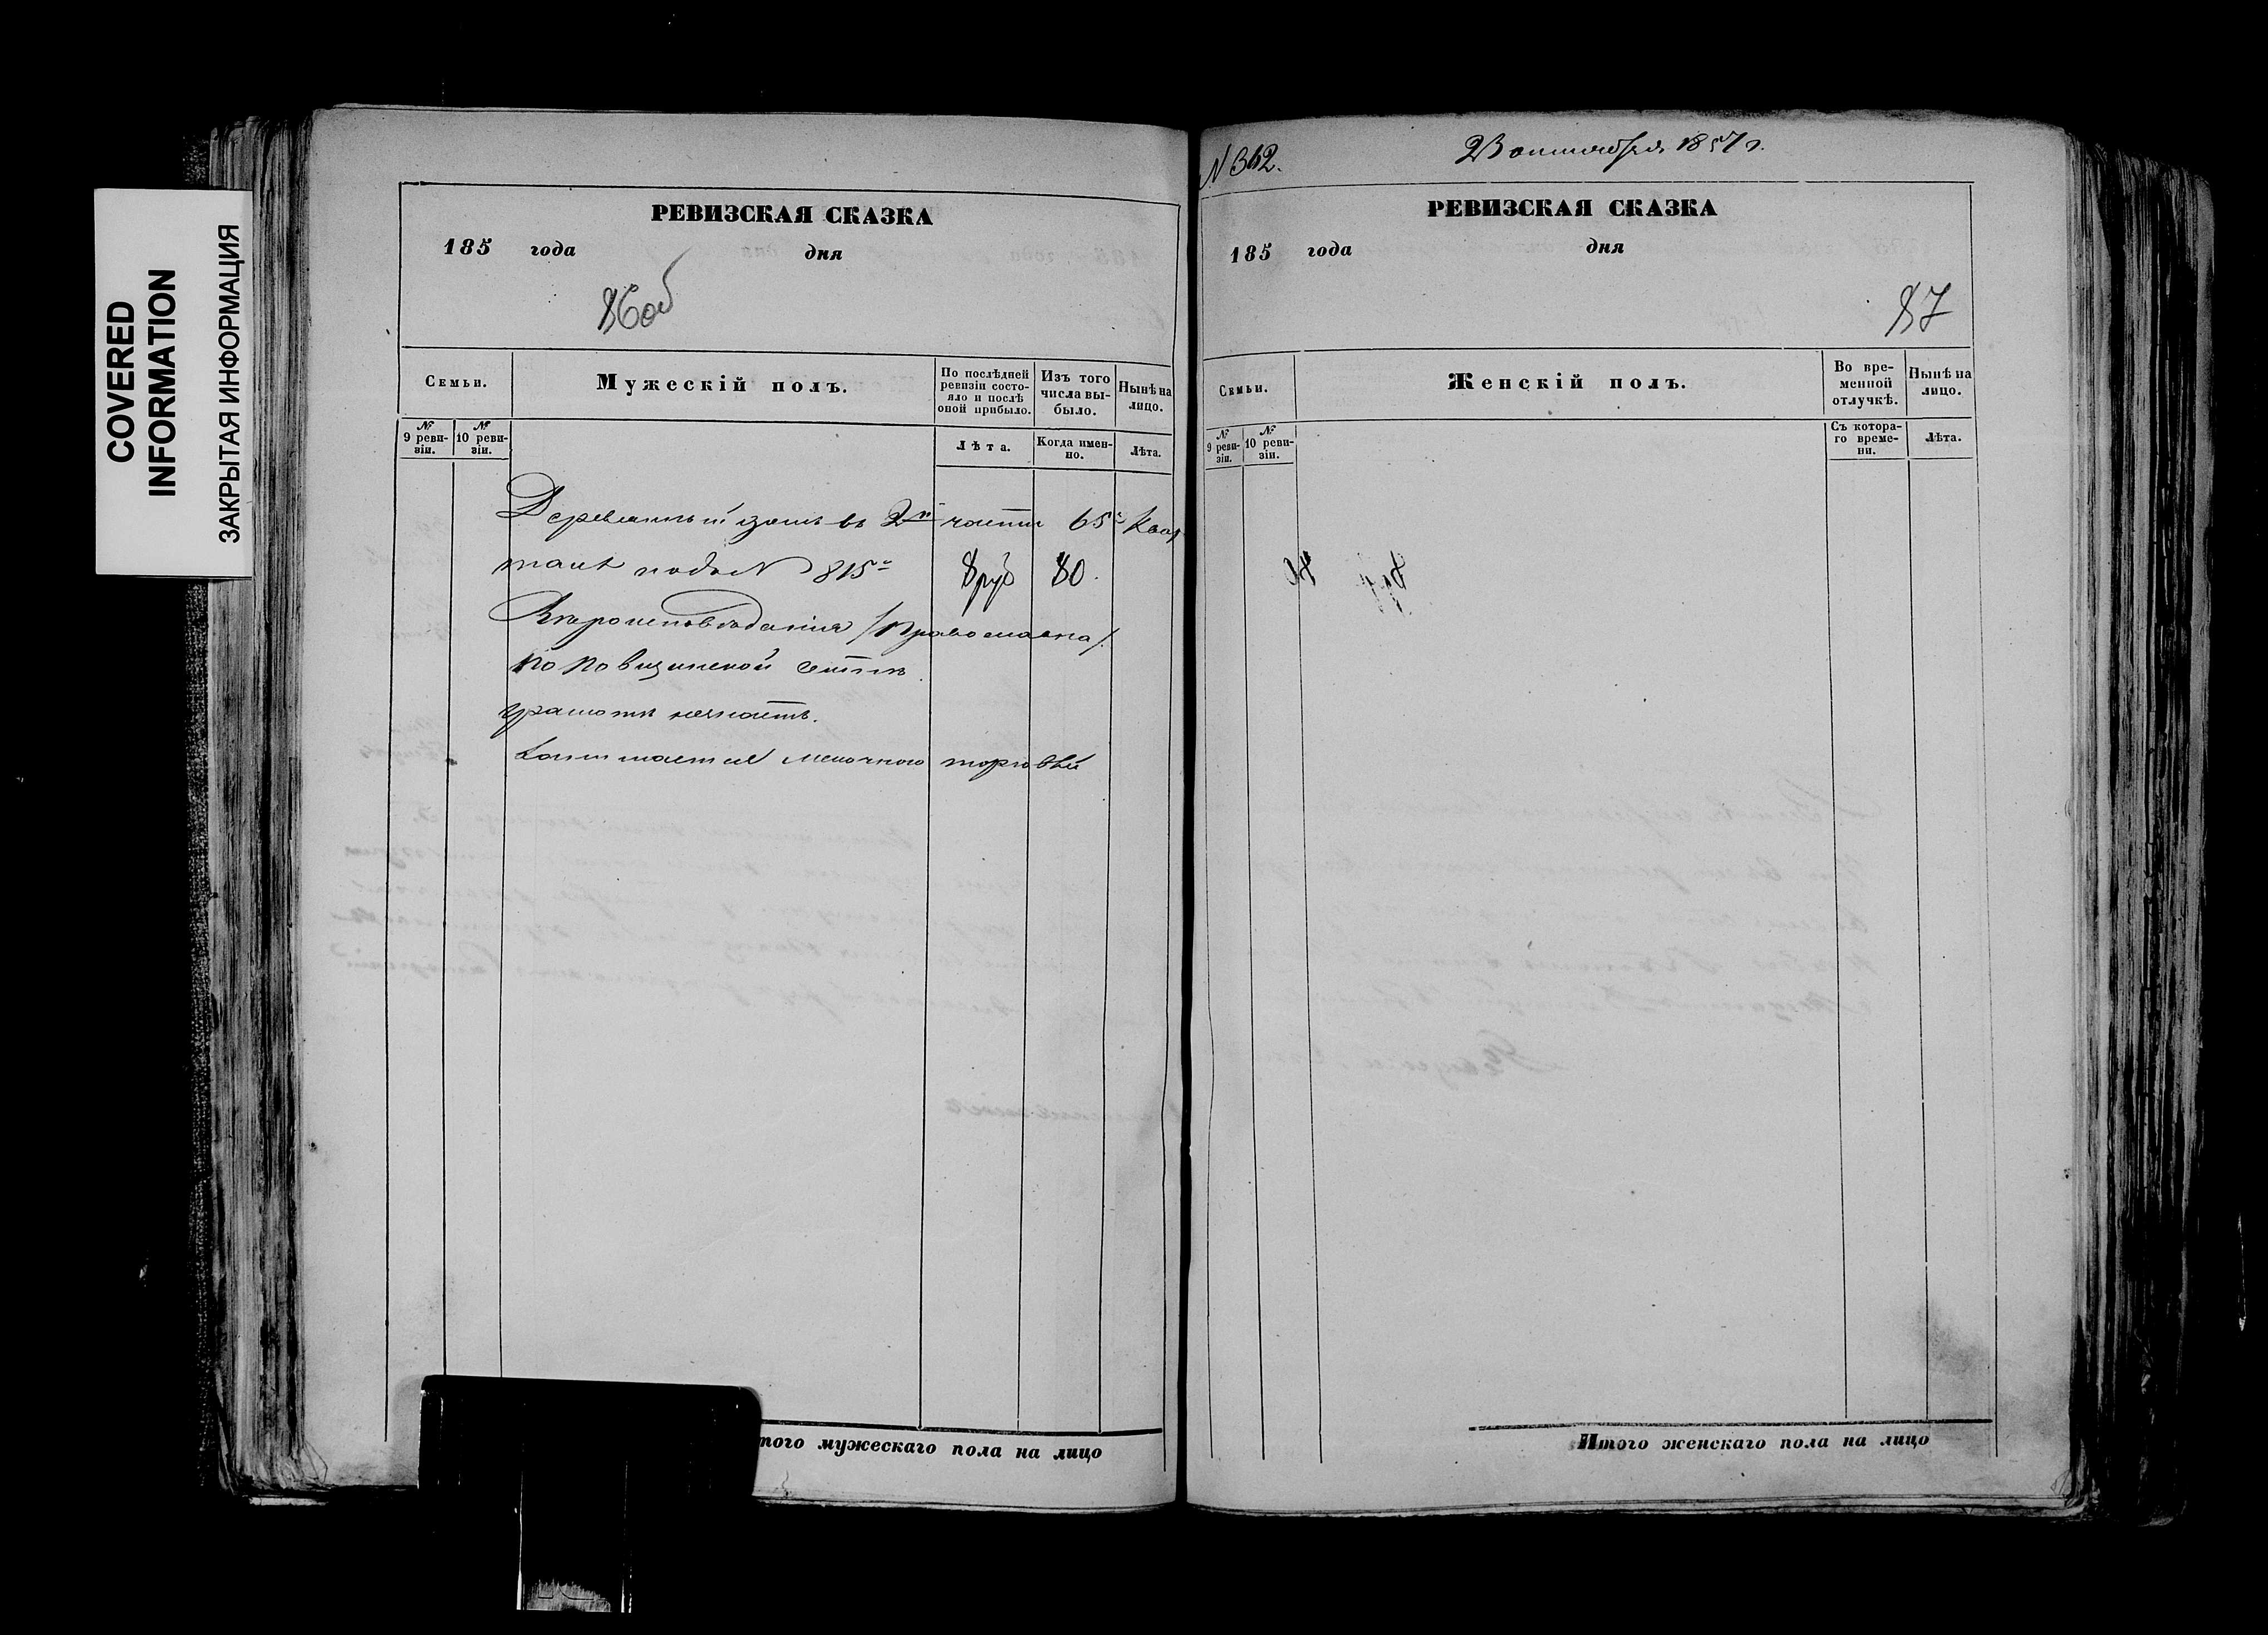 COVERED
INFORMATION
ЗАКРЫТАЯ ИНФОРМАЦИЯ
РЕВИЗСКАЯ СКАЗКА
185 года дня
86об
Семьи. Мужескій полъ. По послѣдней ревизіи состо-яло и послѣ оной прибыло. Изъ того числа вы-было. Нынѣ на лицо.
№ 9 реви-зіи. № 10 реви-зіи. Лѣта. Когда имен-но. Лѣта.
Деревянный домъ въ 2й части 65м квар
талѣ подъ № 815м 8 руб 80.
Вѣроисповѣданія /Православна/.
по Поповщинской сектѣ
грамотѣ незнаетъ.
Занимается мелочною торговлей
того мужескаго пола на лицо
№ 362. 23 октября 1857 г.
РЕВИЗСКАЯ СКАЗКА
185 года дня
87
Семьи. Женскій полъ. Во вре-менной отлучкѣ. Нынѣ на лицо.
№ 9 реви-зіи. № 10 реви-зіи. Съ котора-го време-ни. Лѣта.
Итого женскаго пола на лицо